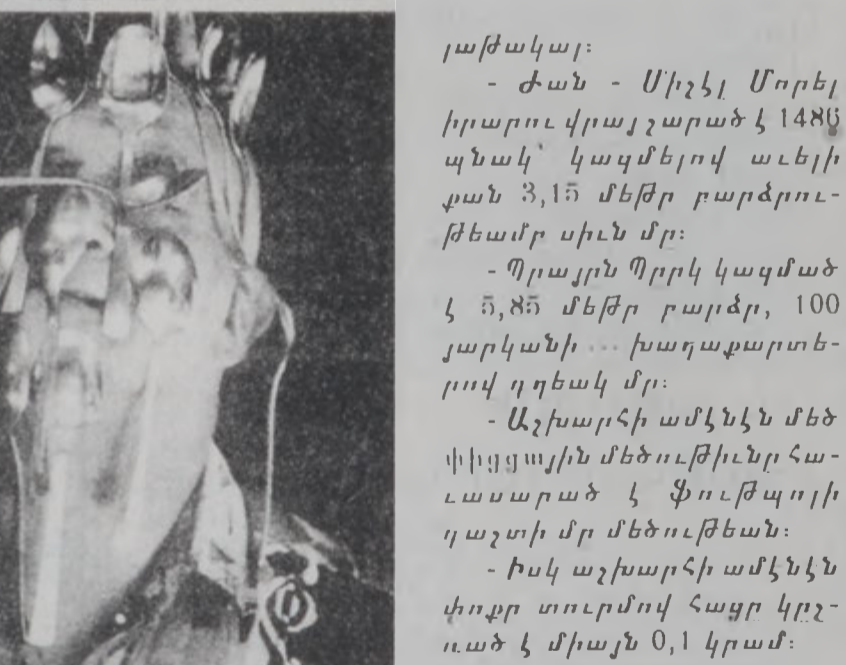 յաթակալ։
- Ժան - Միշէլ Մորել
իրարու վրայ շարած է 1486
պնակ՝ կազմելով աւելի
քան 3,15 մեթր բարձրու-
թեամբ սիւն մը։
- Պրայըն Պըրկ կազմած
է 5,85 մեթր բարձր, 100
յարկանի ... խաղաքարտե-
րով դղեակ մը։
- Աշխարհի ամէնէն մեծ
փիցցային մեծութիւնը հա-
ւասարած է ֆութպոլի
դաշտի մը մեծութեան։
- Իսկ աշխարհի ամէնէն
փոքր տուրմով հացը կըշ-
ռած է միայն 0,1 կրամ։